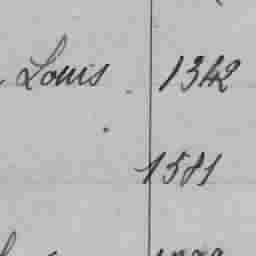 Louis 1342
1581